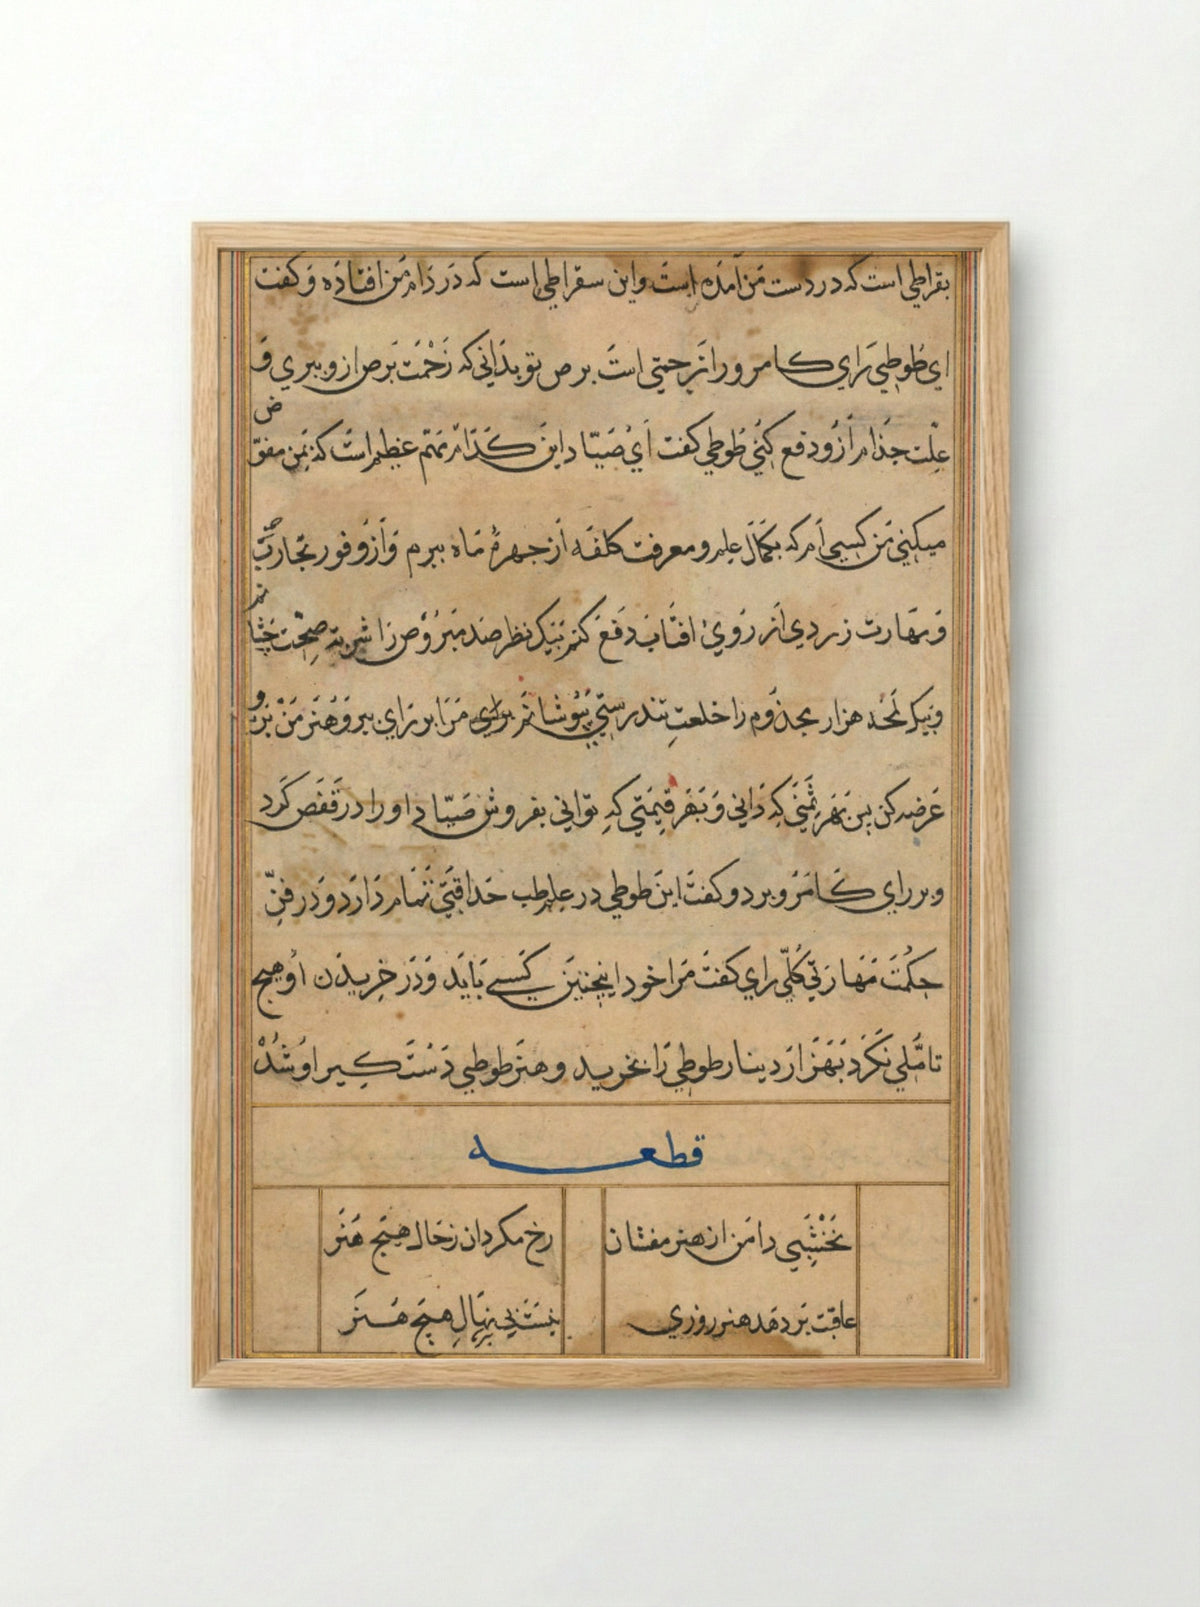 بقراطی است که در دست من آمده است و این سقراطی است که در دام من افتاده و کفت
ای طوطی رای کامرو را زحمتی است برص تو بدانی که زحمت برص ازو ببری و
علت جذام ازو دفع کنی طوطی کفت ای صیاد این کدام مهم عظیم است که بمن مفوض
میکنی من کسی ام که بکمال علم و معرفت کلفه از چهرهٔ ماه ببرم و از وفور تجارب
و مهارت زردی از روی افتاب دفع کنم بیک نظر صد مبروص را شربت صحت چشانم
و بیک لمحه هزار مجذوم را خلعت تندرستی پوشانم مرا بر رای ببر و هنر من برو
عرضه کن پس بهر ثمنی که دانی و بهر قیمتی که توانی بفروش صیاد او را در قفص کرد
و بر رای کامرو برد و کفت این طوطی در علم طب حذاقتی تمام دارد و در فن
حکمت مهارتی کلی رای کفت مرا خود اینچنین کسی باید و در خریدن او هیچ
تاملی نکرد بهزار دینار طوطی را بخرید و هنر طوطی دست کیر او شد
قطعه
نخشبی دامن از هنر مفشان
رخ مکردان ز حال هیچ هنر
عاقبت بر دهد هنر روزی
نیست بی نهال هیچ هنر